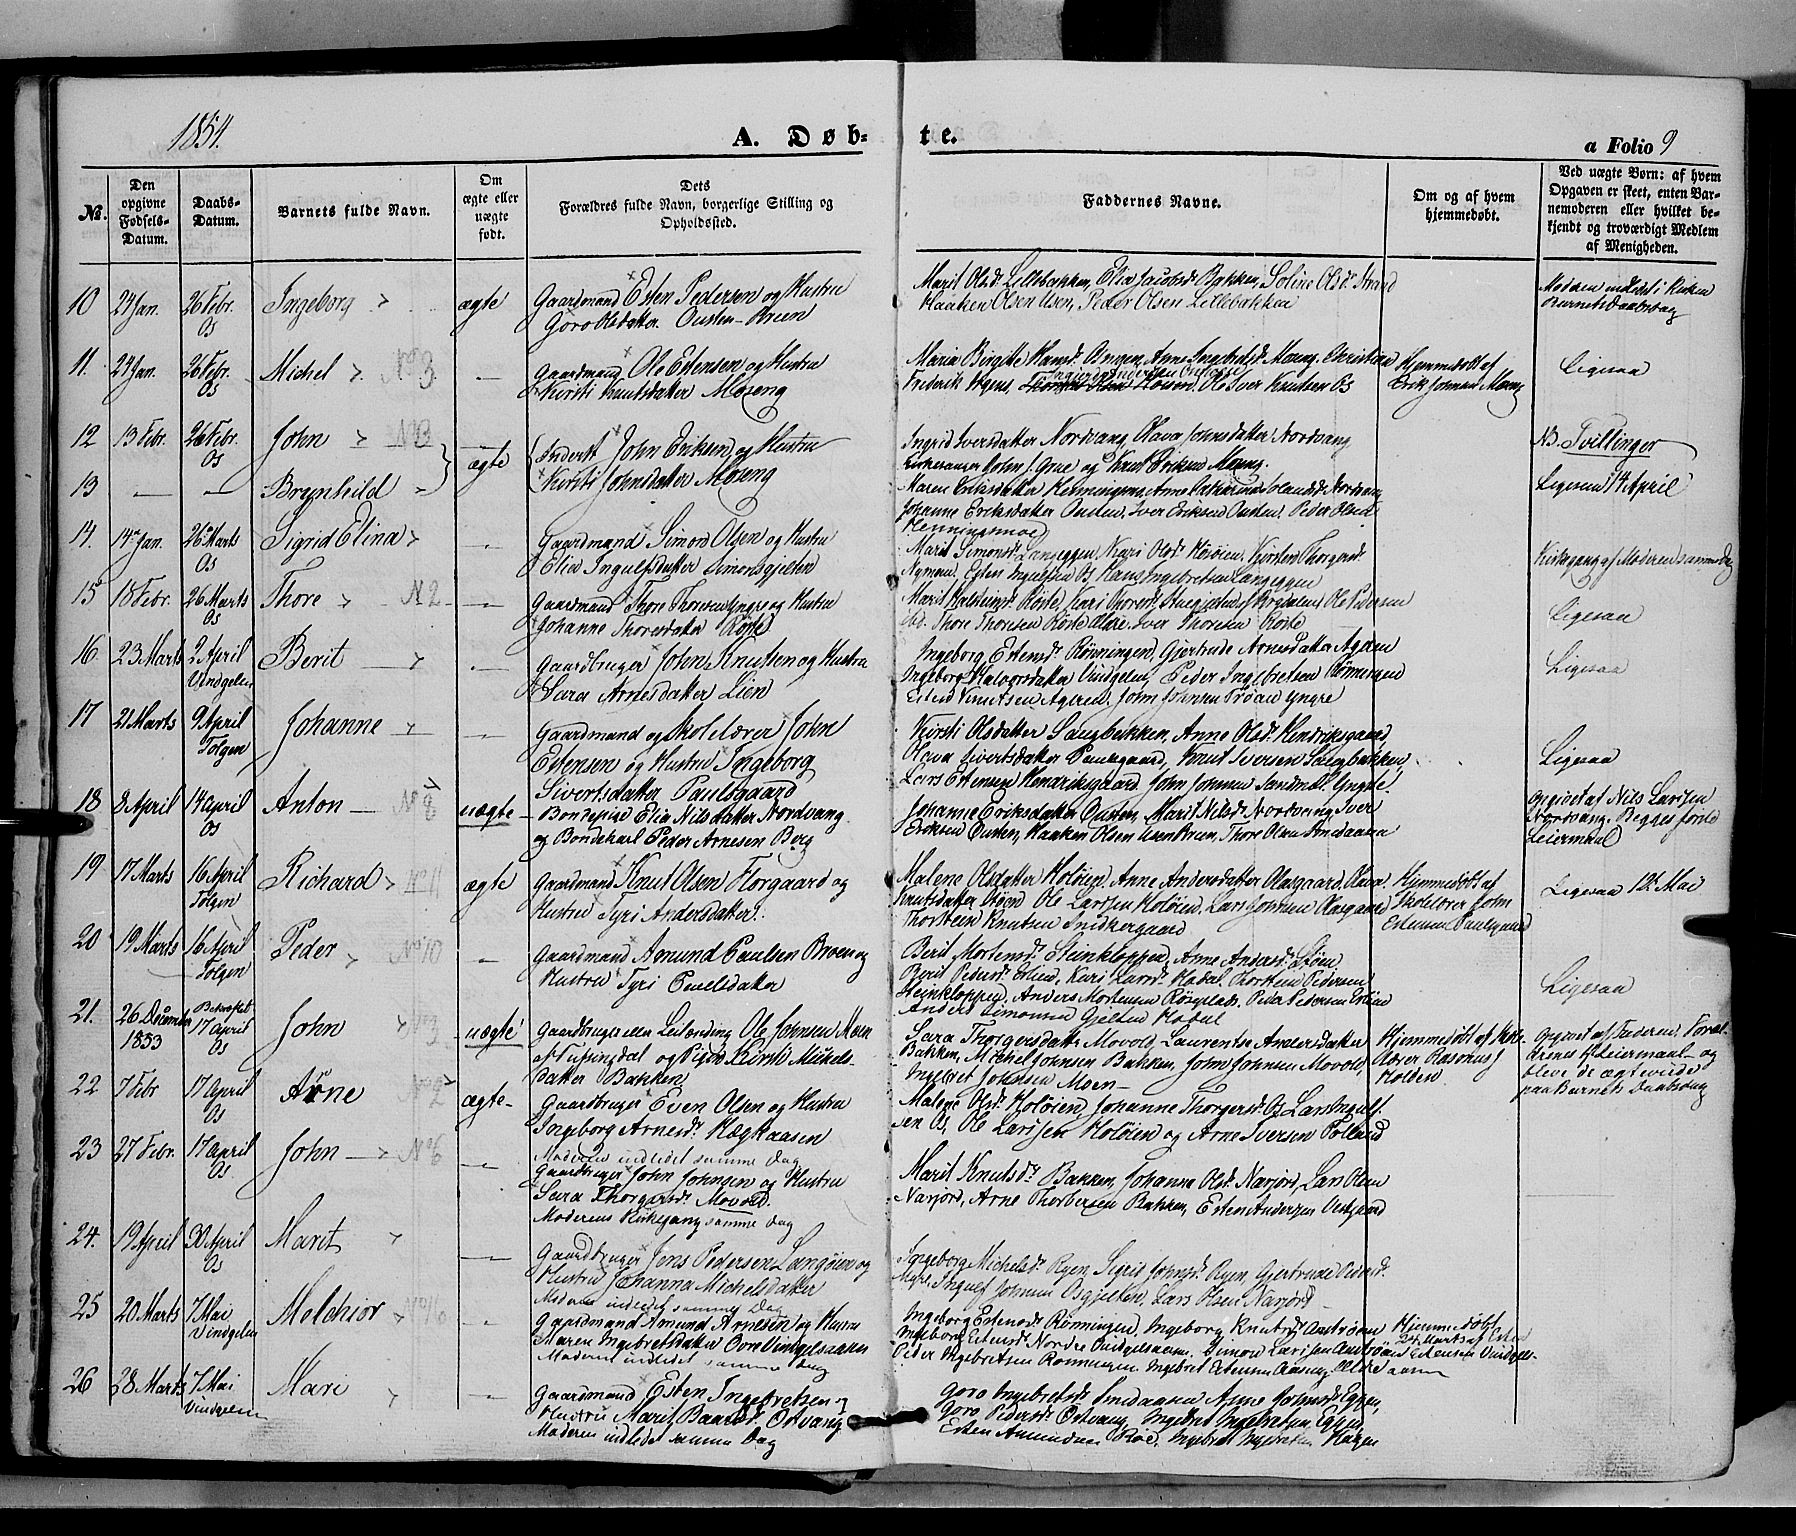 1854.
A. Døb-
te.
a Folio 9
No.
Den opgivne Fødsels-Datum.
Daabs-Datum.
Barnets fulde Navn.
Om ægte eller uægte født.
Dets Forældres fulde Navn, borgerlige Stilling og Opholdssted.
Faddernes Navne.
Om og af hvem hjemmedøbt.
Ved uægte Børn: af hvem Opgaven er skeet, enten Barnemoderen eller hvilket bekjendt og troværdigt Medlem af Menigheden.
10 24 Jan. 26 Febr. Os Ingeborg ægte
Gaardmand Esten Pedersen og Hustru
Goro Olsdatter Ousten-Bruen
Marit Olsd. Lillebakken, Elia Jacobsd. Bakken, Soline Olsd. Strand
Haaken Olsen Usen, Peder Olsen Lillebakken
Moderen indledt i Kirken
Barnets Daabsdag
11. 24 Jan. 26 Febr. Os Michel No 3
Gaardmand Ole Estensen og Hustru
Kirsti Knutsdatter Moseng
Frederik Ole Iver Knutsen Os
Hjemmedøbt af
Erik Johnsen Moseng
Ligesaa
12 13 Febr. 26 Febr. Os John N3
ægte
Inderst John Eriksen og Hustru
Kirsti Johnsdatter Moseng
Ingrid Iversdatter Nordvang, Olava Johnsdatter Nordvang
Kirkesanger John J. Grue og Knut Eriksen Moseng.
NB. Tvillinger
13 Brynhild
Maren Eriksdatter Henningsmo, Anne Catharina Nordvang
Johanne Eriksdatter Ousten, Iver Eriksen Ousten, Peder Olsen
Henningsmoe
Ligesaa 14 April
14. 14 Jan. 26 Marts Os Sigrid Elina
Gaardmand Simon Olsen og Hustru
Elia Ingulfsdatter Simensgjelten
Marit Simonsd. Langeggen, Kari Olsd. Holøien, Kjersten Thorgersd.
Nymoen, Esten Ingulfsen Os, Hans Ingebretsen Langeggen
Kirkegang af Moderen samme Dag
15 18 Febr. 26 Marts Os Thore N 2
Gaardmand Thore Thoresen Yngre og Hustru
Johanne Thoresdatter Røste
Thore Thoresen Røste Iver Thoresen Røste
Ligesaa
16 23 Marts 2 April Vindgelen Berit
Gaardbruger John Knutsen og Hustru
Sara Arnesdatter Lien
Ingeborg Estensd. Rønningen, Gjertrude Arnesdatter Ageren
Ingeborg Halvorsdatter Vindgelen, Peder Ingebretsen Rønningen
Erland Knutsen Ageren, John Johnsen Trøan Yngre
Ligesaa
17 21 Marts 9 April Tolgen Johanne
Gaardmand og Skolelærer John
Estensen og Hustru Ingeborg
Sivertsdatter Paulsgaard
Kirsti Olsdatter Langbakken, Anne Olsd. Hendriksgaard
Olava Sivertsdatter Paulsgaard, Knut Iversen Langbakken,
Lars Estensen Hendriksgaard, John Johnsen Sandnæs Yngste.
Ligesaa
18 8 April 14 April Os Anton N 8 uægte
Bondepige Elia Nilsdatter Nordvang
og Bondekarl Peder Arnesen Berg
Johanne Eriksdatter Ousten, Marit Nilsd. Nordvang, Iver
Eriksen Ousten, Haaken Olsen Usenbruen, Thore Olsen Smedaasen
Opgivet af Nils Larsen
Nordvang. Begges første
Leiermaal
19 17 Marts 16 April Tolgen Richard No 11 ægte
Gaardmand Knut Olsen Florgaard og
Hustru Tyri Andersdatter.
Malene Olsdatter Holøien, Anne Andersdatter Olasgaard, Olava
Knutsdatter Støen, Ole Larssen Holøien, Lars Johnsen Olasgaard
Thorsteen Knutsen Snidkergaard
Hjemmedøbt af
Skolelærer John
Estensen Paulsgaard
Ligesaa 12 Mai
20 19 Marts 16 April Tolgen Peder No 10
Gaardmand Amund Paulsen Broen og
Hustru Tyri Poulsdatter
Berit Mortensd. Steinkloppen, Anne Andersd. Støen
Berit Pedersd. Erlien, Kari Larsd. Hodal, Thorsteen Pedersen
Steinkloppen, Anders Mortensen Peder Pedersen Erlien
Anders Simonsen Gjelten Hodal
Ligesaa
21. 26 December 1853 Bekræft. 17 April Os John No 3 uægte
Gaardbruger eller Leilending Ole Johnsen Moen
af Tufsingdal og Pigen Kirsti Mikels-
datter Bakken
Sara Thorgersdatter Movold, Laurentse Andersdatter
Bakken, Michel Johnsen Bakken, John Johnsen Movold,
Ingebret Johnsen Moen
Hjemmedøbt af Skole-
lærer Rasmus J
Holden
Opgivet af Faderen. Foræl-
drenes 1ste Leiermaal og
bleve de ægteviede
paa Barnets Daabsdag
22 7 Febr 17 April Os Arne No 2 ægte
Gaardbruger Even Olsen og Hustru
Ingeborg Arnesd. Hægkaasen
Moderen indledet samme Dag
Malene Olsd. Holøien, Johanne Thorgersd. Os, Lars Ingulf-
sen Os, Ole Larssen Holøien og Arne Iversen Polland
23 27 Febr. 17 April Os John No 6
Gaardbruger John Johnsen og Hustru
Sara Thorgersd. Movold.
Moderens Kirkegang samme Dag
Marit Knutsd. Bakken, Johanne Olsd. Narjord, Lars Olsen
Narjord, Arne Thorbersen Bakken, Esten Andersen Vestgaard
24. 19 April 30 April Os Marit
Gaardbruger Jens Pedersen Langøien og
Hustru Johanna Michelsdatter
Moderen indledet samme Dag
Ingeborg Michelsd. Ryen, Sigrid Johnsd. Ryen, Gjertrude Pedersd.
Ingulf Johnsen Osgjelten, Lars Olsen Narjord
25 20 Marts 7 Mai Vindgelen Melchior No 16
Gaardmand Amund Arnesen og Hustru
Maren Ingebretsdatter Oververdgelsaasen
Moderen indledet samme Dag
Ingeborg Estensd. Rønningen, Ingeborg Knutsd. Austrøen
Ingeborg Estensd. Nordre Vindgelsaasen, Simon Larssen Austrøen
Peder Ingebretsen Rønningen, Ingebret Estensen Aaseng
Hjemmedøbt
24 Marts af Esten
Estensen Vindgels-
aasen
26 28 Marts 7 Mai Vindgelen Mari
Gaardmand Esten Ingebretsen og
Hustru Marit Baardsd. Østvang
Moderen indledet samme Dag
Goro Ingebretsd. Smedaasen, Anne Eggen,
Goro Pedersd. Østvang, Ingebret Ingebretsen Eggen
Esten Amundsen Røe, Ingebret Ingebretsen Haugen